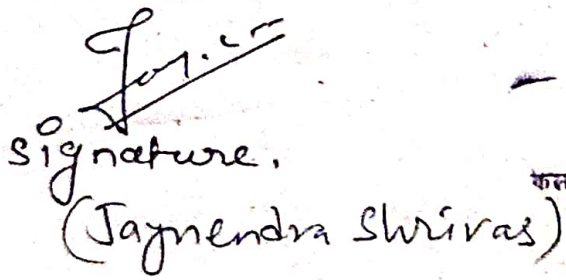 signature.
(Jaynendra Shrivas)